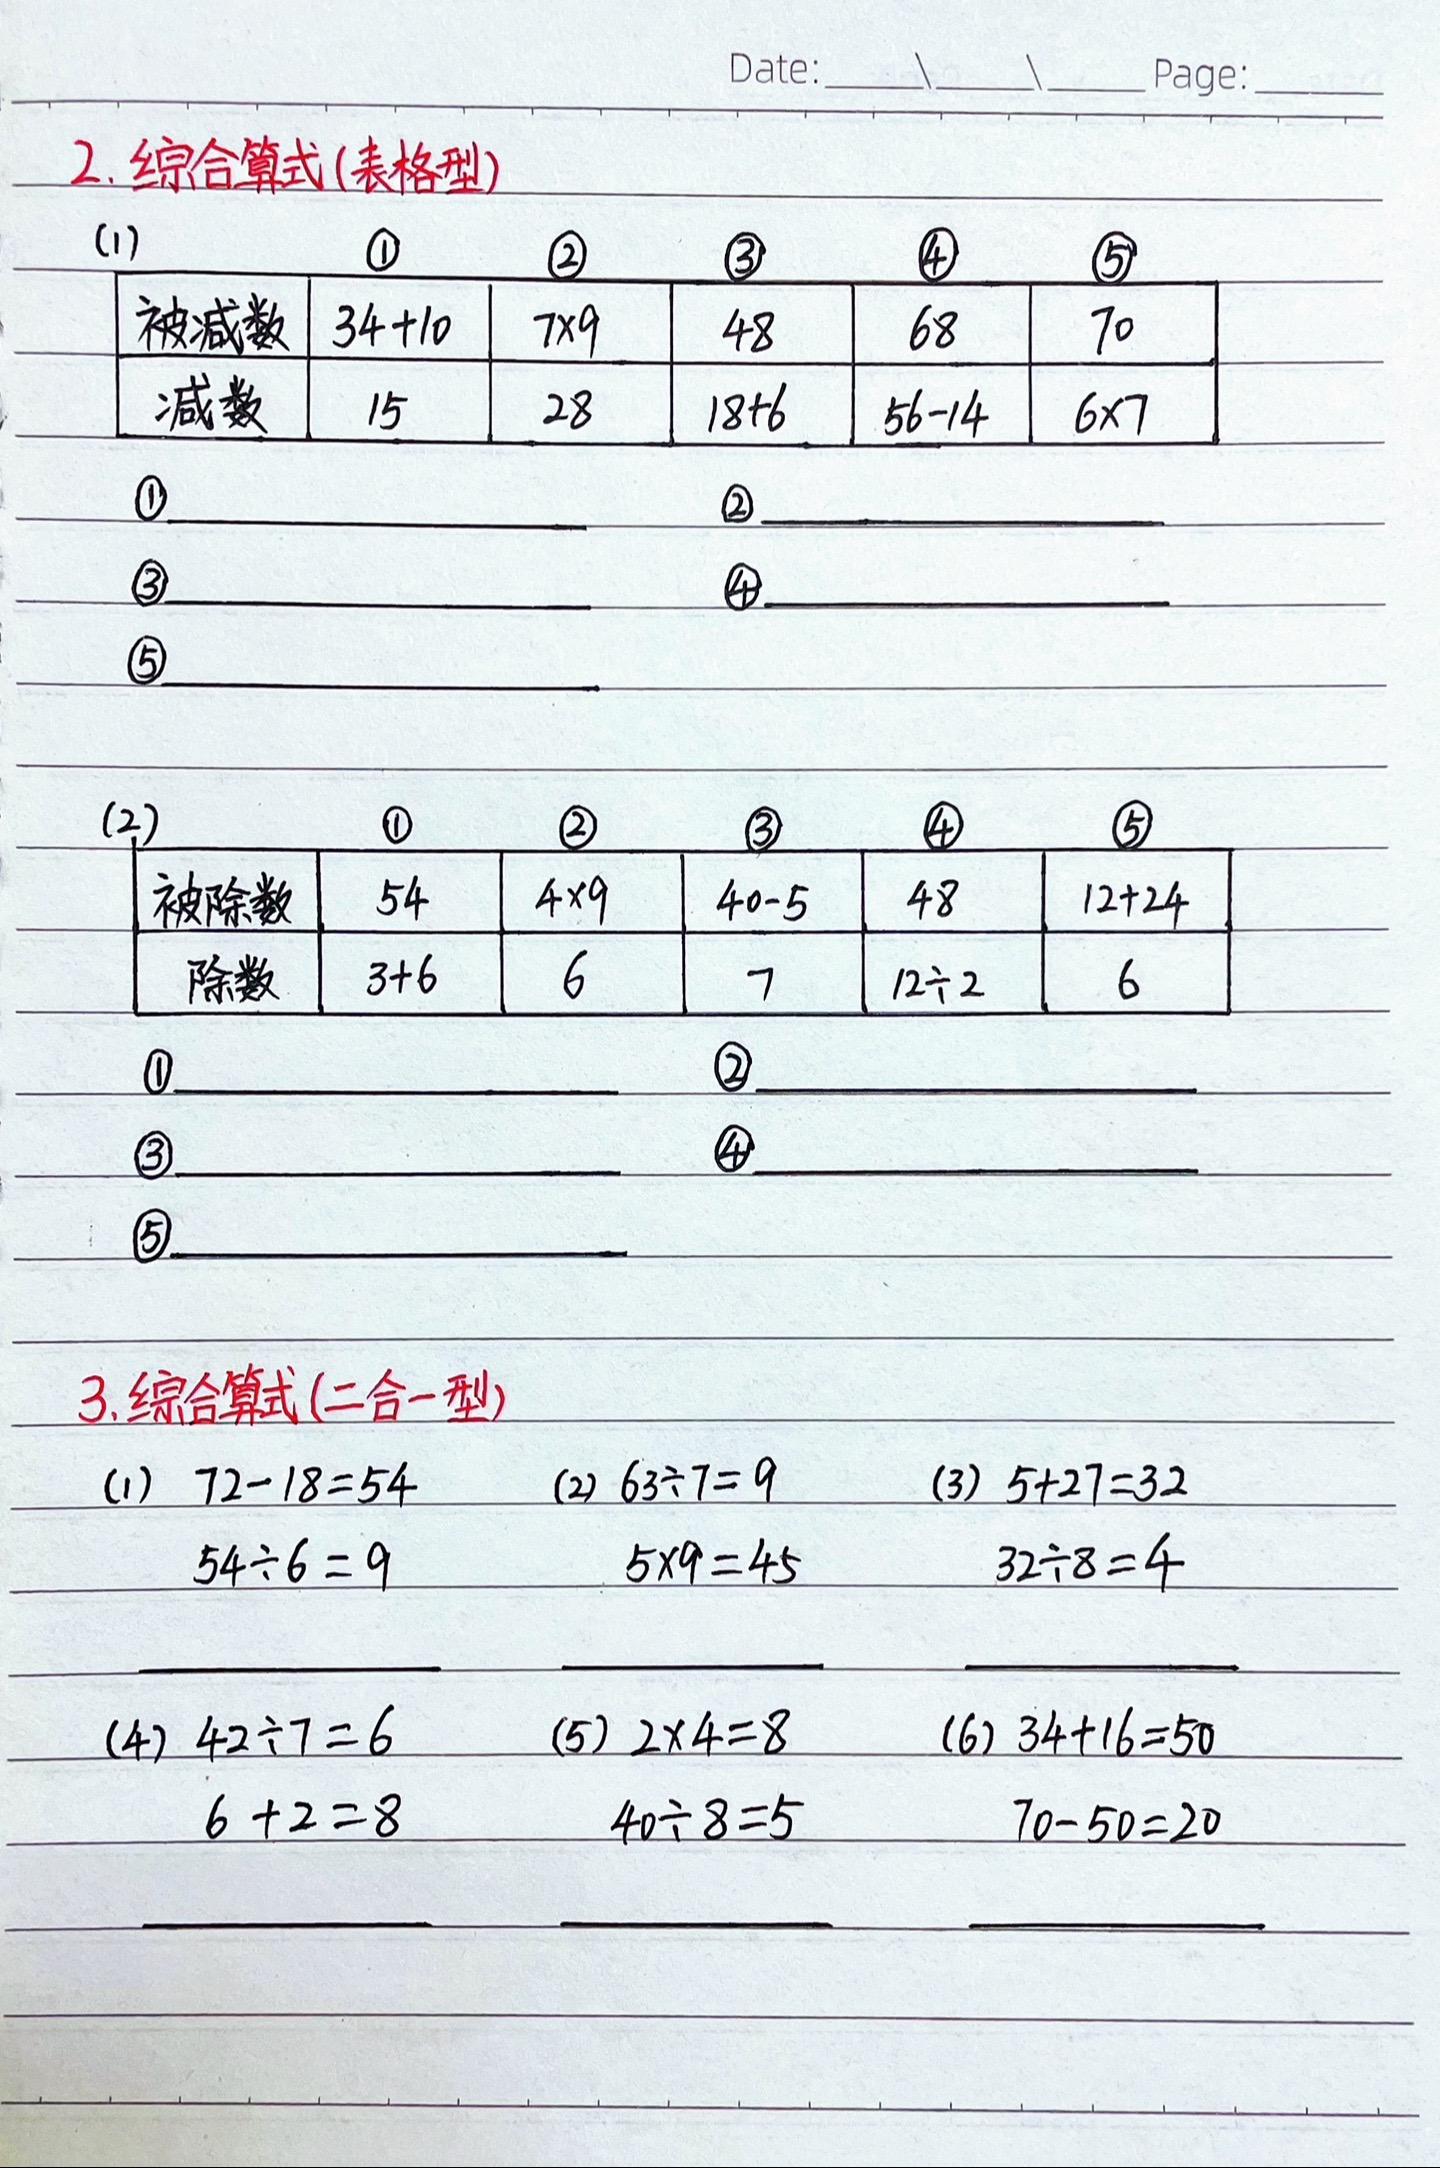 Date:____\____\____ Page:____
2. 综合算式(表格型)
(1) ① ② ③ ④ ⑤
被减数 34+10 7×9 48 68 70
减数 15 28 18+6 56-14 6×7
① ②
③ ④
⑤
(2) ① ② ③ ④ ⑤
被除数 54 4×9 40-5 48 12+24
除数 3+6 6 7 12÷2 6
① ②
③ ④
⑤
3. 综合算式(二合一型)
(1) 72-18=54 (2) 63÷7=9 (3) 5+27=32
54÷6=9 5×9=45 32÷8=4
(4) 42÷7=6 (5) 2×4=8 (6) 34+16=50
6+2=8 40÷8=5 70-50=20